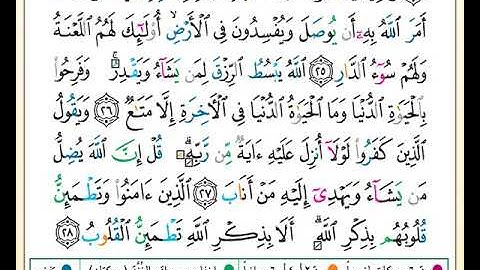 أَمَرَ اللَّهُ بِهِۦٓ أَن يُوصَلَ وَيُفْسِدُونَ فِى الْأَرْضِ ۙ أُولَٰٓئِكَ لَهُمُ اللَّعْنَةُ
وَلَهُمْ سُوٓءُ الدَّارِ ﴿٢٥﴾ اللَّهُ يَبْسُطُ الرِّزْقَ لِمَن يَشَآءُ وَيَقْدِرُ ۚ وَفَرِحُوا۟
بِالْحَيَوٰةِ الدُّنْيَا وَمَا الْحَيَوٰةُ الدُّنْيَا فِى الْءَاخِرَةِ إِلَّا مَتَٰعٌ ﴿٢٦﴾ وَيَقُولُ
الَّذِينَ كَفَرُوا۟ لَوْلَآ أُنزِلَ عَلَيْهِ ءَايَةٌ مِّن رَّبِّهِۦ ۗ قُلْ إِنَّ اللَّهَ يُضِلُّ
مَن يَشَآءُ وَيَهْدِىٓ إِلَيْهِ مَنْ أَنَابَ ﴿٢٧﴾ الَّذِينَ ءَامَنُوا۟ وَتَطْمَئِنُّ
قُلُوبُهُم بِذِكْرِ اللَّهِ ۗ أَلَا بِذِكْرِ اللَّهِ تَطْمَئِنُّ الْقُلُوبُ ﴿٢٨﴾